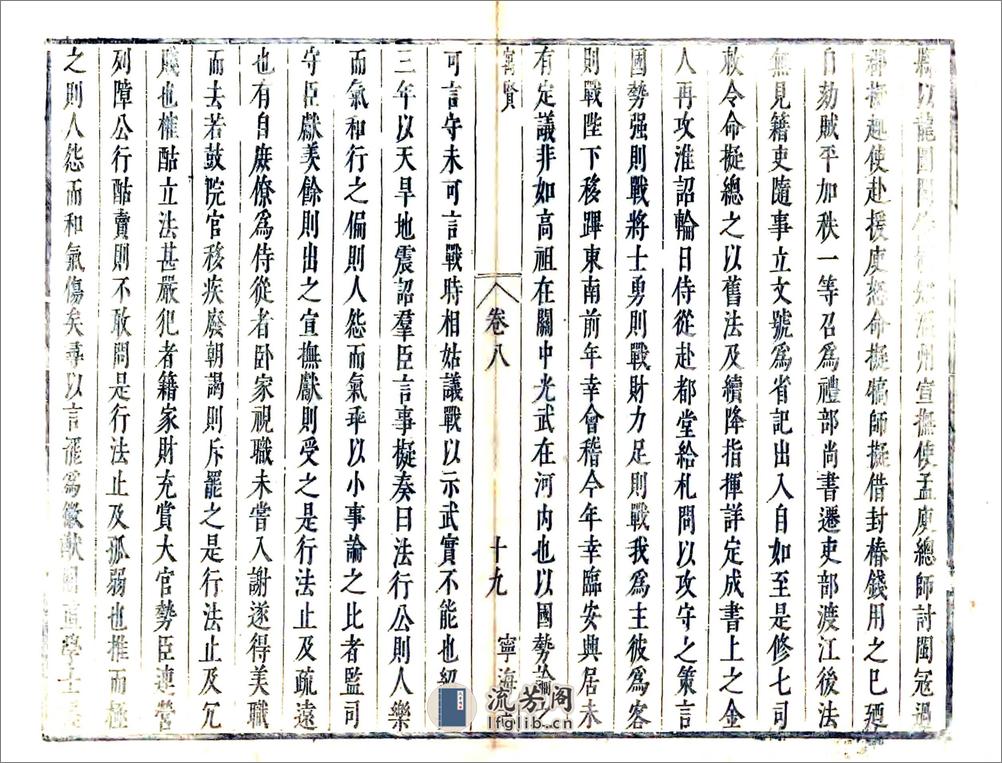 龍圖閣 州宣撫使孟庾總師討閩冦過
郡擬趣使赴援庾怒命擬犒師擬借封椿錢用之已廼
自劾賊平加秩一等召爲禮部尚書遷吏部渡江後法
無見籍吏隨事立文號爲省記出入自如至是修七司
敕令命擬總之以舊法及續降指揮詳定成書上之金
人再攻淮詔輪日侍從赴都堂給札問以攻守之策言
國勢强則戰將士勇則戰財力足則戰我爲主彼爲客
則戰陛下移蹕東南前年幸會稽今年幸臨安興居未
有定議非如高祖在關中光武在河内也以國勢論
賢 卷八 十九 寧海
可言守未可言戰時相姑議戰以示武實不能也紹
三年以天旱地震詔羣臣言事擬奏曰法行公則人樂
而氣和行之偏則人怨而氣乖以小事論之比者監司
守臣獻羙餘則出之宣撫獻則受之是行法止及疏遠
也有自庶僚爲侍從者卧家視職未嘗入謝遂得美職
而去若鼓院官移疾廢朝謁則斥罷之是行法止及冗
賤也榷酤立法甚嚴犯者籍家財充賞大官勢臣連營
列障公行酤賣則不敢問是行法止及孤弱也推而極
之則人怨而和氣傷矣尋以言罷爲徽猷閣直學士
流芳阁
lfglib.cn